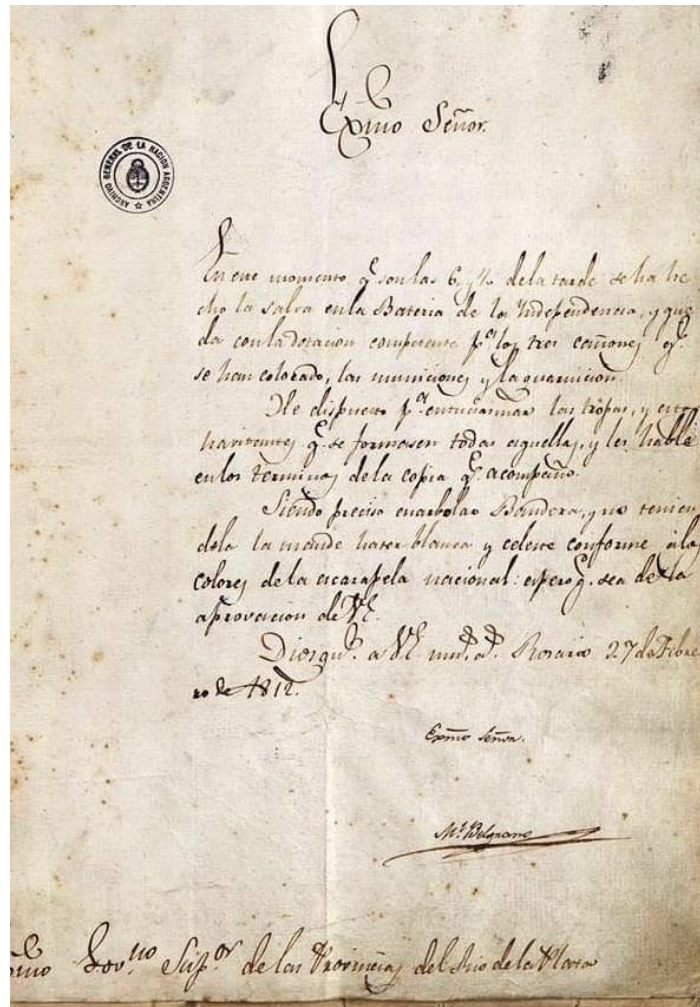 Exmo Señor.
ARCHIVO GENERAL DE LA NACION ARGENTINA
En este momento q.e son las 6 y 1/2 de la tarde se ha he
cho la salva en la Bateria de la Yndependencia, y que
da con la dotacion competente p.a los tres cañones q.e
se han colocado, las municiones y la guarnicion.
He dispuesto p.a entusiasmar las tropas, y estos
havitantes q.e se formasen todas aquellas, y les hablé
en los terminos de la copia q.e acompaño.
Siendo preciso enarbolar Bandera, y no tenien
dola la mandé hacer blanca y celeste conforme á los
colores de la escarapela nacional: espero q.e sea de la
aprovacion de VE.
Dios gu.e a VE m.s a.s Rosario 27 de Febre
ro de 1812.
Exmo Señor.
M.l Belgrano
Exmo Gov.no Sup.or de las Provincias del Rio de la Plata